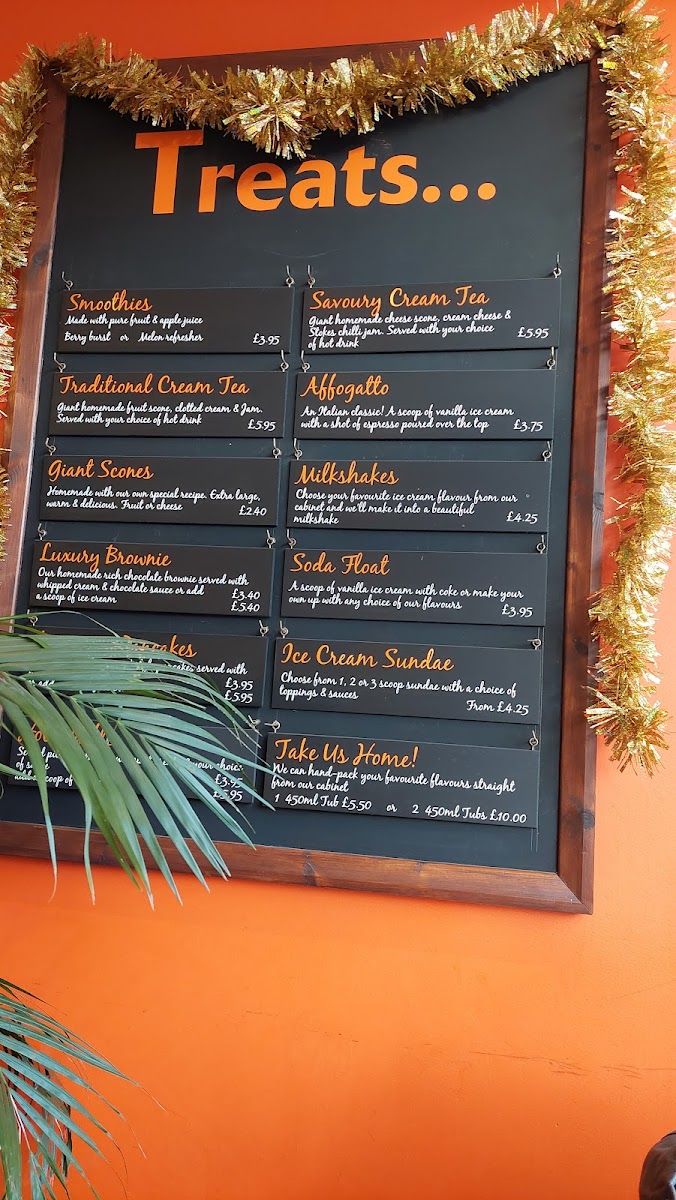 Treats...
Smoothies
Made with pure fruit & apple juice
Berry burst or Melon refresher £3.95
Traditional Cream Tea
Giant homemade fruit scone, clotted cream & Jam.
Served with your choice of hot drink £5.95
Giant Scones
Homemade with our own special recipe. Extra large,
warm & delicious. Fruit or cheese £2.40
Luxury Brownie
Our homemade rich chocolate brownie served with
whipped cream & chocolate sauce or add £3.40
a scoop of ice cream £5.40
Pancakes
served with
£3.95
£5.95
your choice
of
scoop of £3.95
£5.95
Savoury Cream Tea
Giant homemade cheese scone, cream cheese &
Stokes chilli jam. Served with your choice
of hot drink £5.95
Affogatto
An Italian classic! A scoop of vanilla ice cream
with a shot of espresso poured over the top £3.75
Milkshakes
Choose your favourite ice cream flavour from our
cabinet and we'll make it into a beautiful
milkshake £4.25
Soda Float
A scoop of vanilla ice cream with coke or make your
own up with any choice of our flavours £3.95
Ice Cream Sundae
Choose from 1, 2 or 3 scoop sundae with a choice of
toppings & sauces
From £4.25
Take Us Home!
We can hand-pack your favourite flavours straight
from our cabinet
1 450ml Tub £5.50 or 2 450ml Tubs £10.00